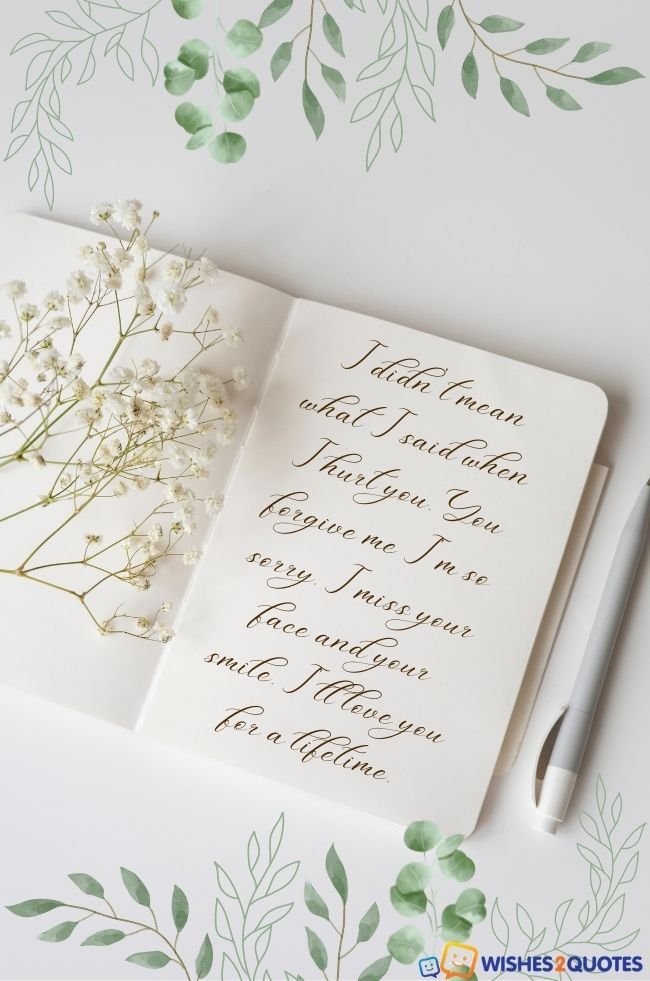 I didn't mean
what I said when
I hurt you. You
forgive me I'm so
sorry. I miss your
face and your
smile. I'll love you
for a lifetime.
WISHES2QUOTES